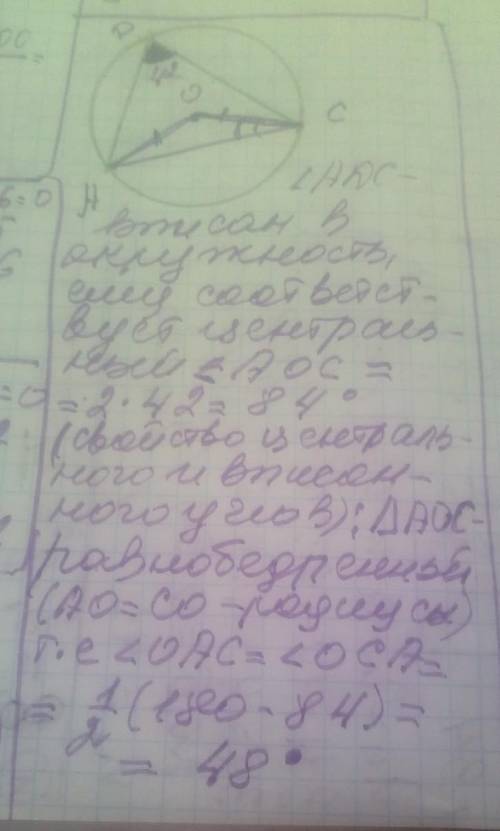 42
O
C
∠ADC -
A
вписан в
окружность,
ему соответст-
вует централь-
ный ∠AOC =
= 2·42 = 84°
(свойство централь-
ного и вписан-
ного углов); ΔAOC-
равнобедренный
(AO=CO - радиусы)
т.е ∠OAC = ∠OCA =
= 1/2 (180 - 84) =
= 48°